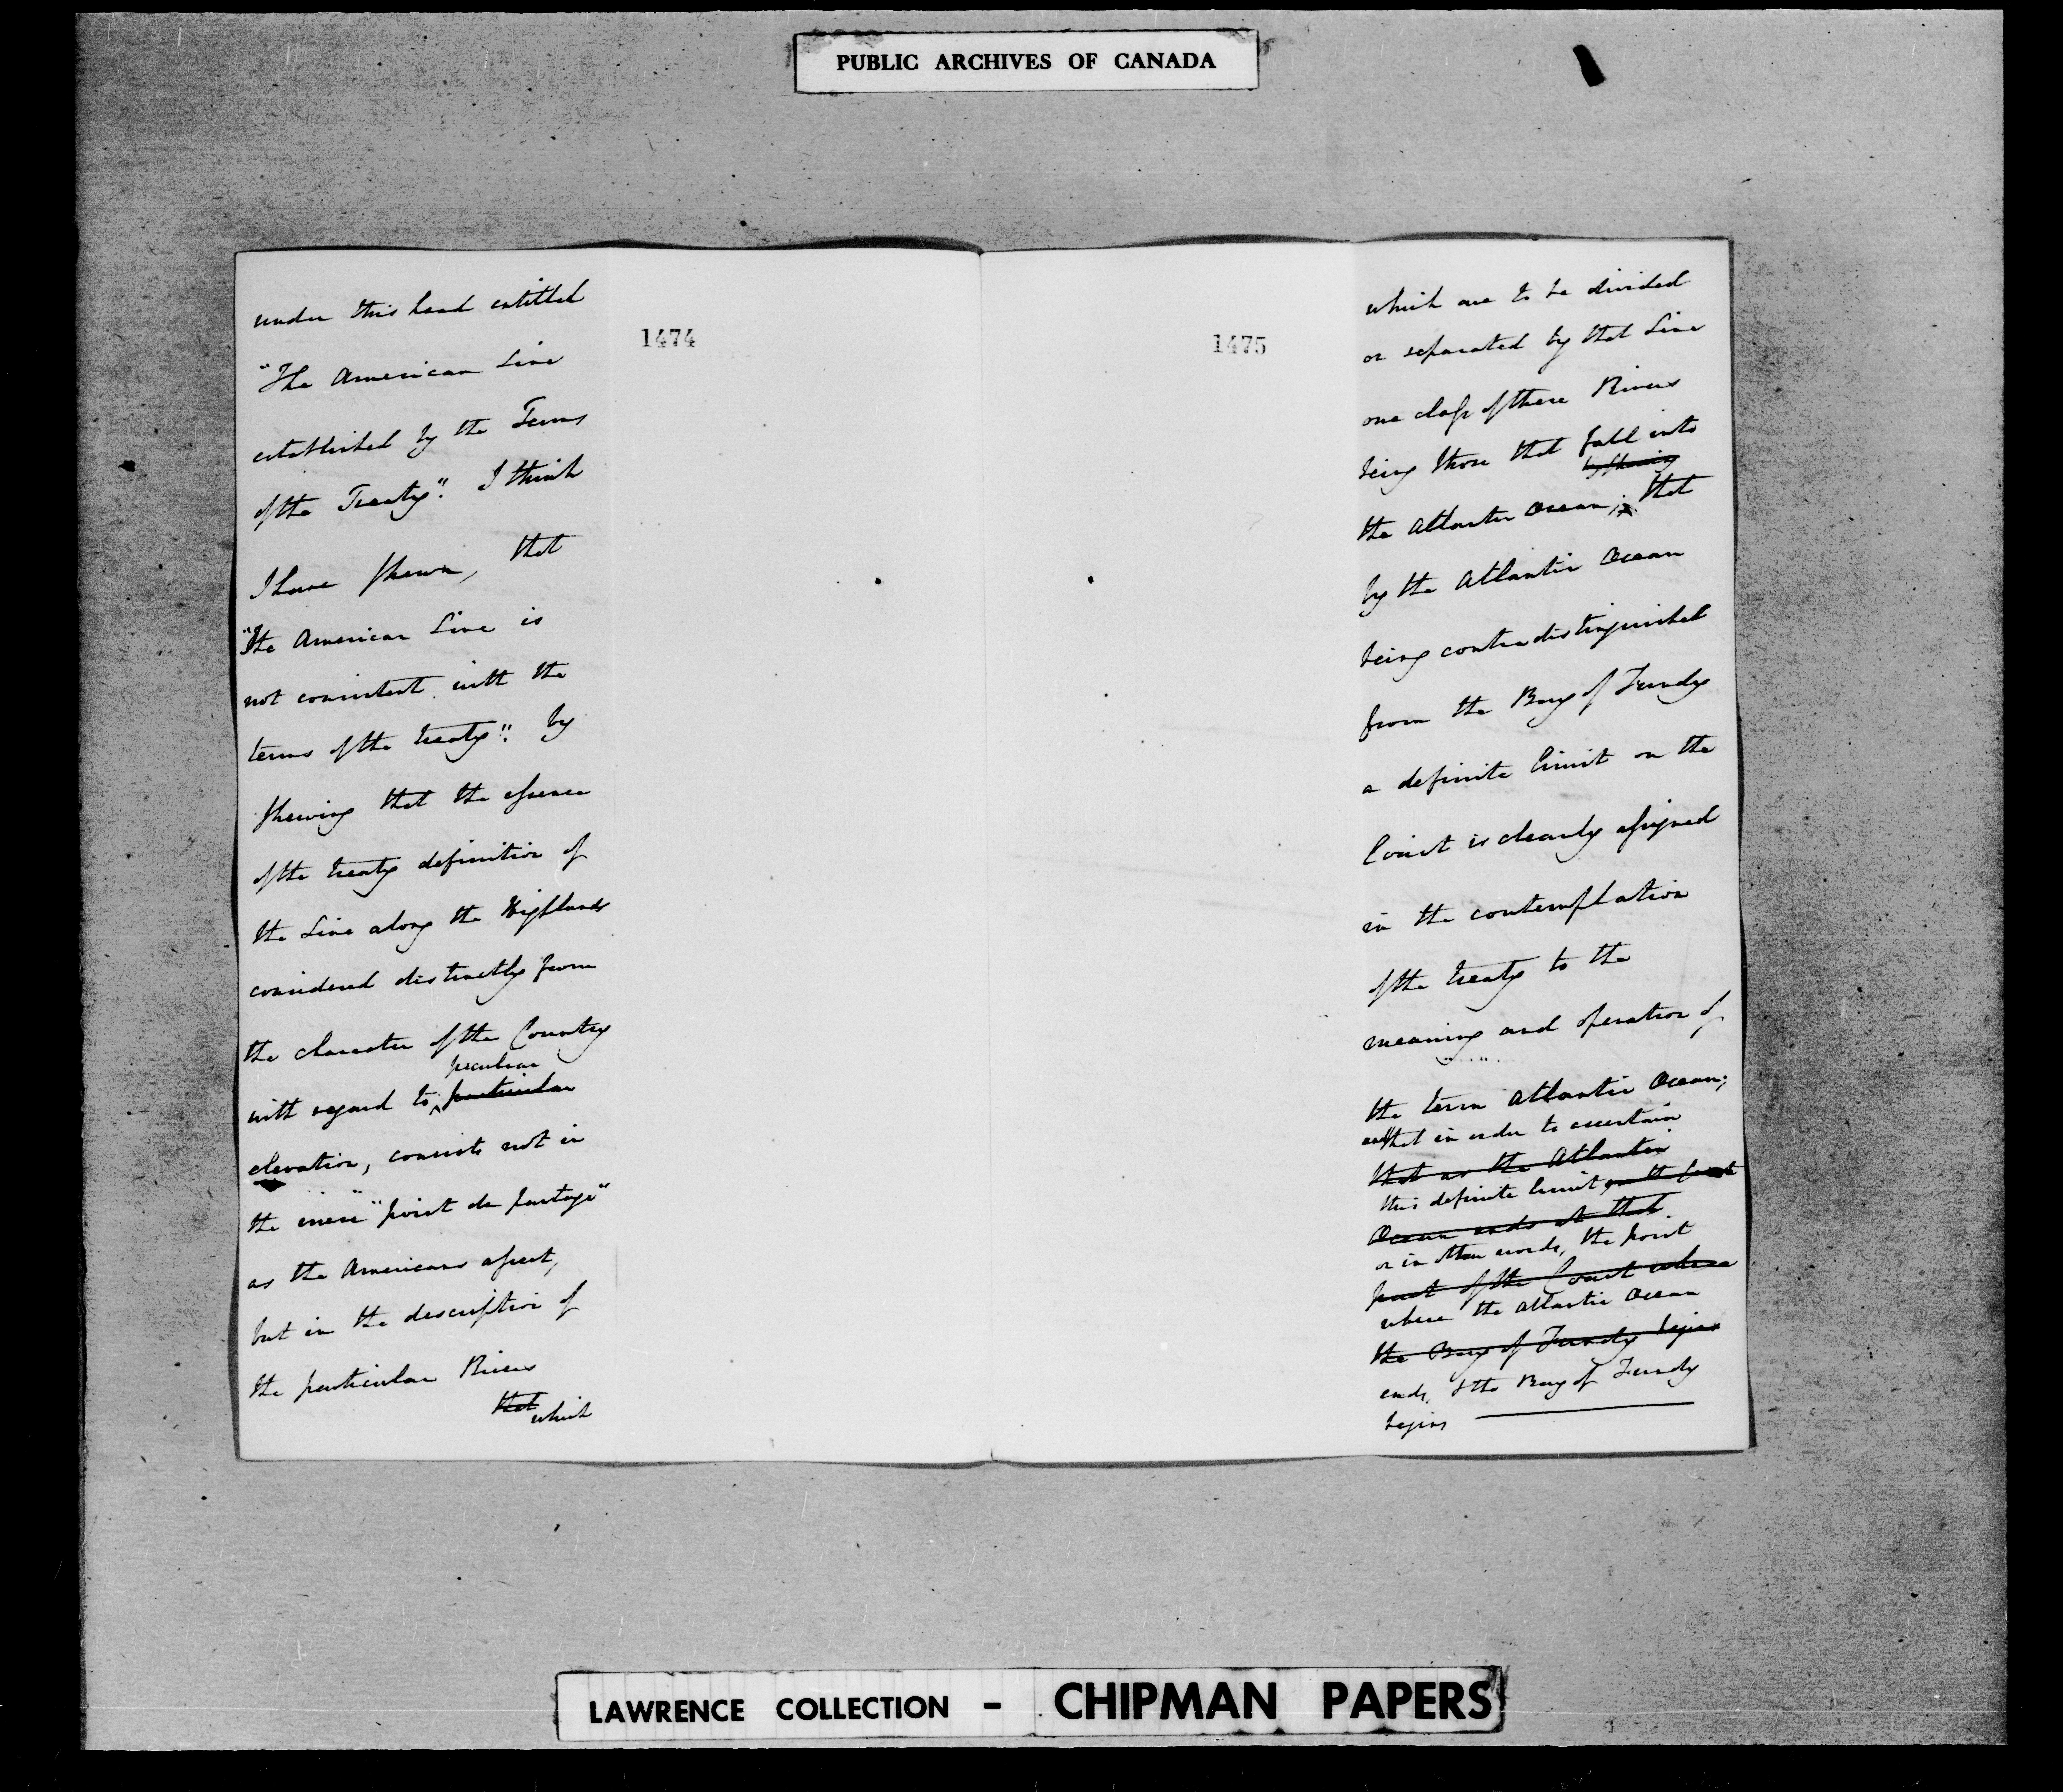 PUBLIC ARCHIVES OF CANADA
1474
under this head entitled
"The American Line
established by the Terms
of the Treaty". I think
I have shewn, that
"The American Line is
not consistent with the
terms of the treaty". by
shewing that the essence
of the treaty definition of
the Line along the Highlands
considered distinctly from
the character of the Country
peculiar
with regard to ^ particular
elevation, consists not in
the mere "point de partage"
as the Americans assert,
but in the description of
the particular Rivers
that which
1475
which are to be divided
or separated by that Line
one class of these Rivers
being those that fall into
by shewing
the Atlantic Ocean; that
by the Atlantic Ocean
being contradistinguished
from the Bay of Fundy
a definite limit on the
Coast is clearly assigned
in the contemplation
of the treaty to the
meaning and operation of
the term Atlantic Ocean;
and that in order to ascertain
that as the Atlantic
this definite limit, on the
Ocean ends at that
or in other words, the point
part of the Coast where
where the Atlantic Ocean
the Bay of Fundy begins
ends, & the Bay of Fundy
begins
LAWRENCE COLLECTION - CHIPMAN PAPERS